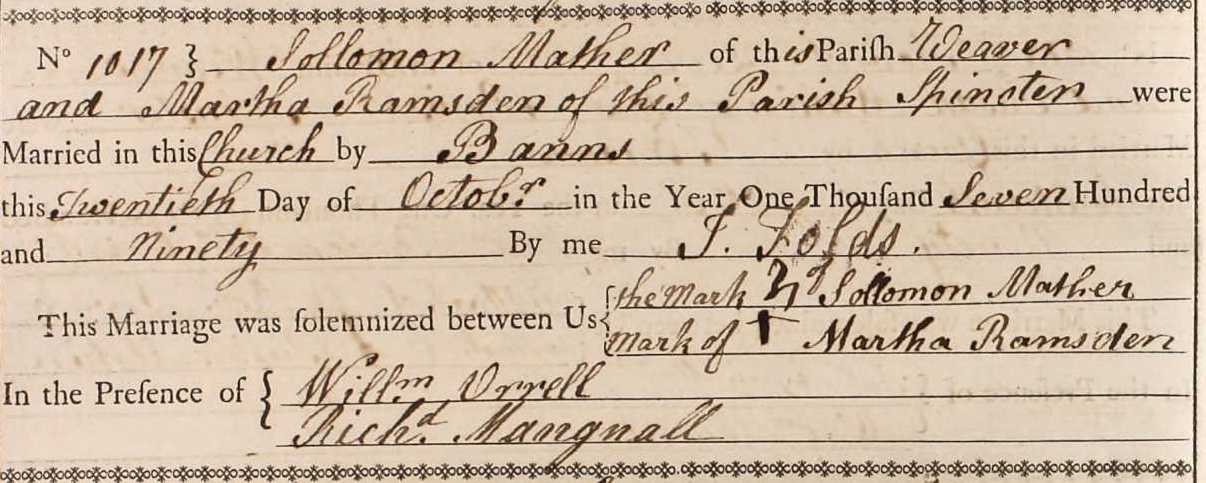 Nº 1017 } Sollomon Mather of this Pariſh Weaver
and Martha Ramsden of this Parish Spinster were
Married in this Church by Banns
this Twentieth Day of Octobr in the Year One Thouſand Seven Hundred
and Ninety By me J. Folds.
This Marriage was ſolemnized between Us { the Mark of Sollomon Mather
Mark of † Martha Ramsden
In the Preſence of { Willm Orrell
Richd. Mangnall